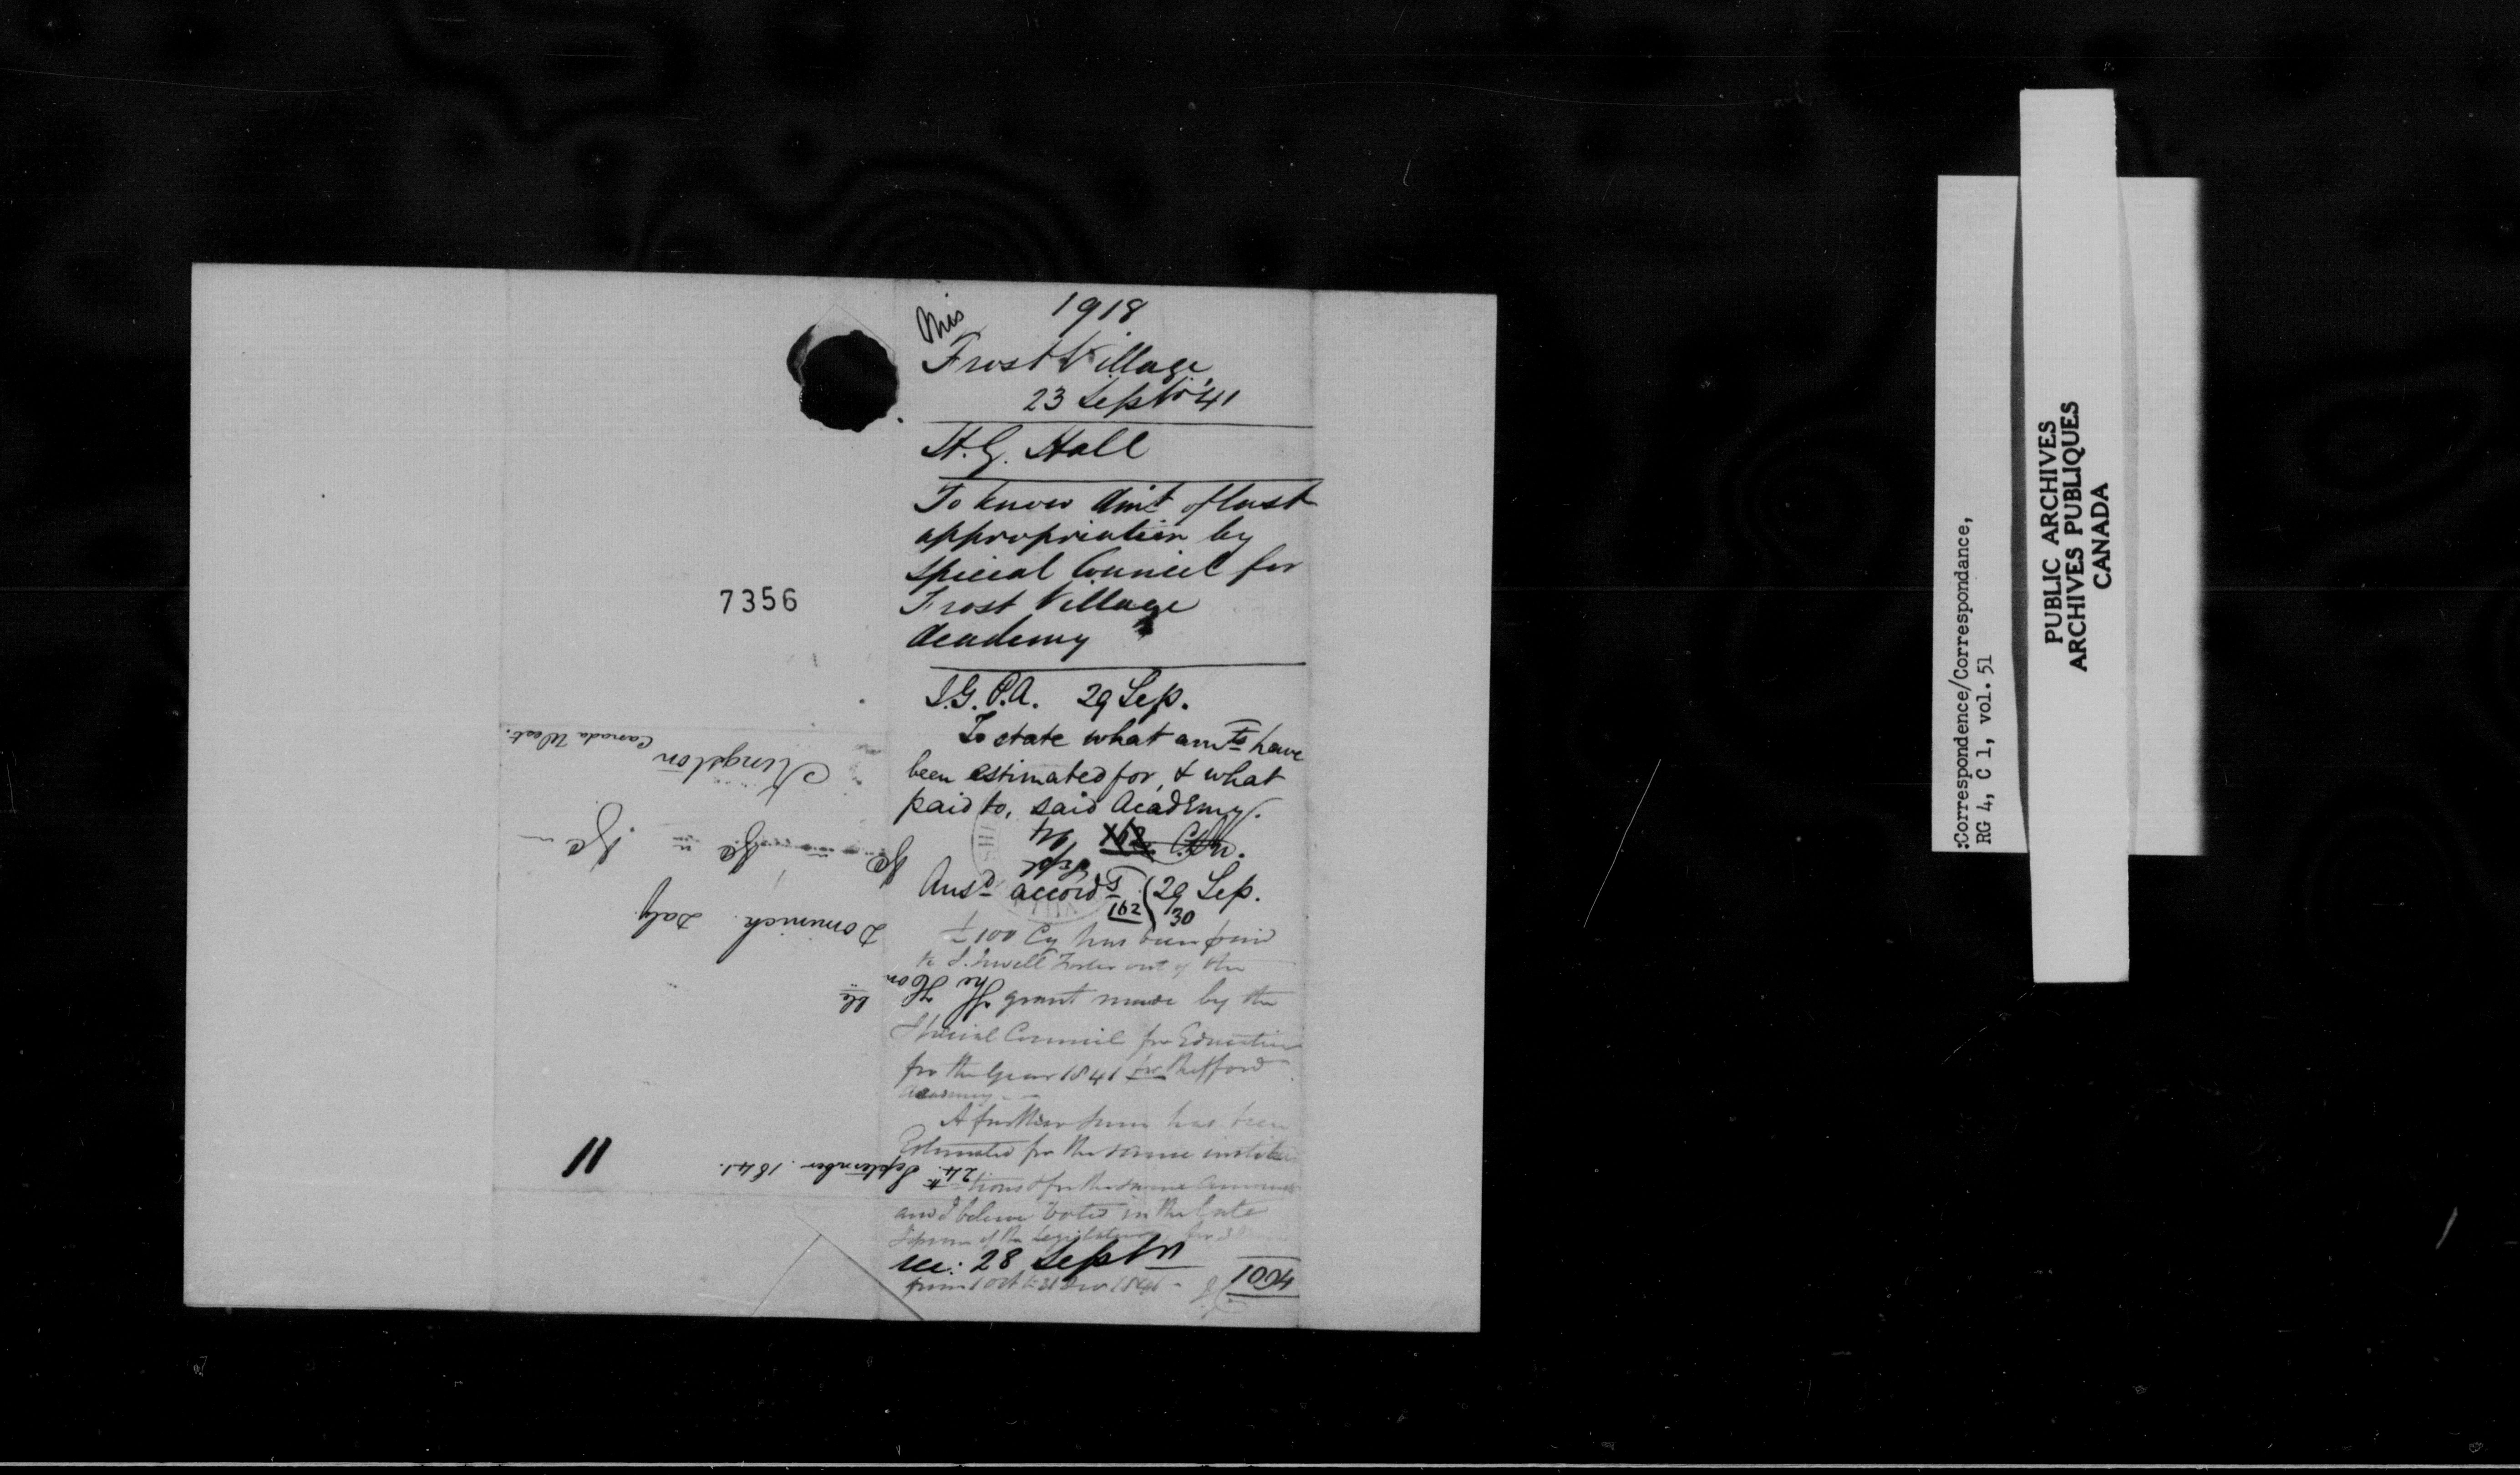 Mis
1918
Frost Village
23 Septr '41
H. G. Hall
To know Amt of last
appropriation by
Special Council for
Frost Village
Academy
I.G.P.A. 29 Sep.
To state what amts have
been estimated for, & what
paid to, said Academy.
Ansd accordg 29 Sep.
162 30
£100 Cy has been paid
to S. Sewell Foster out of the
grant made by the
Special Council for Education
for the Year 1841 for Shefford
Academy
A further sum has been
Estimated for the same institu
tions & for the same
and I believe Voted in the late
Session of the Legislature for 3
rec: 28 Septr
from 1 Oct to 31 Dec 1841
1004
7356
11
The Honble
Dominick Daly
&c &c &c
Kingston
Canada West.
24th September 1841.
:Correspondence/Correspondance,
RG 4, C 1, vol. 51
PUBLIC ARCHIVES
ARCHIVES PUBLIQUES
CANADA